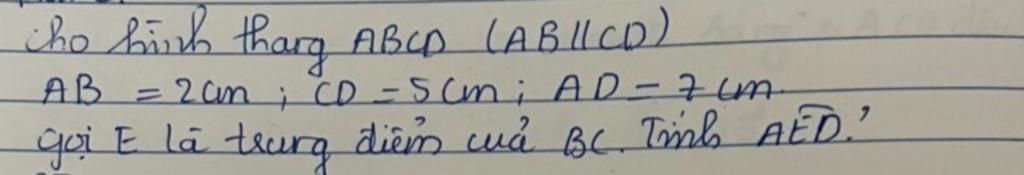 Cho hình thang ABCD (AB//CD)
AB = 2cm ; CD = 5cm ; AD = 7cm.
gọi E là trung điểm của BC. Tính AÊD.?